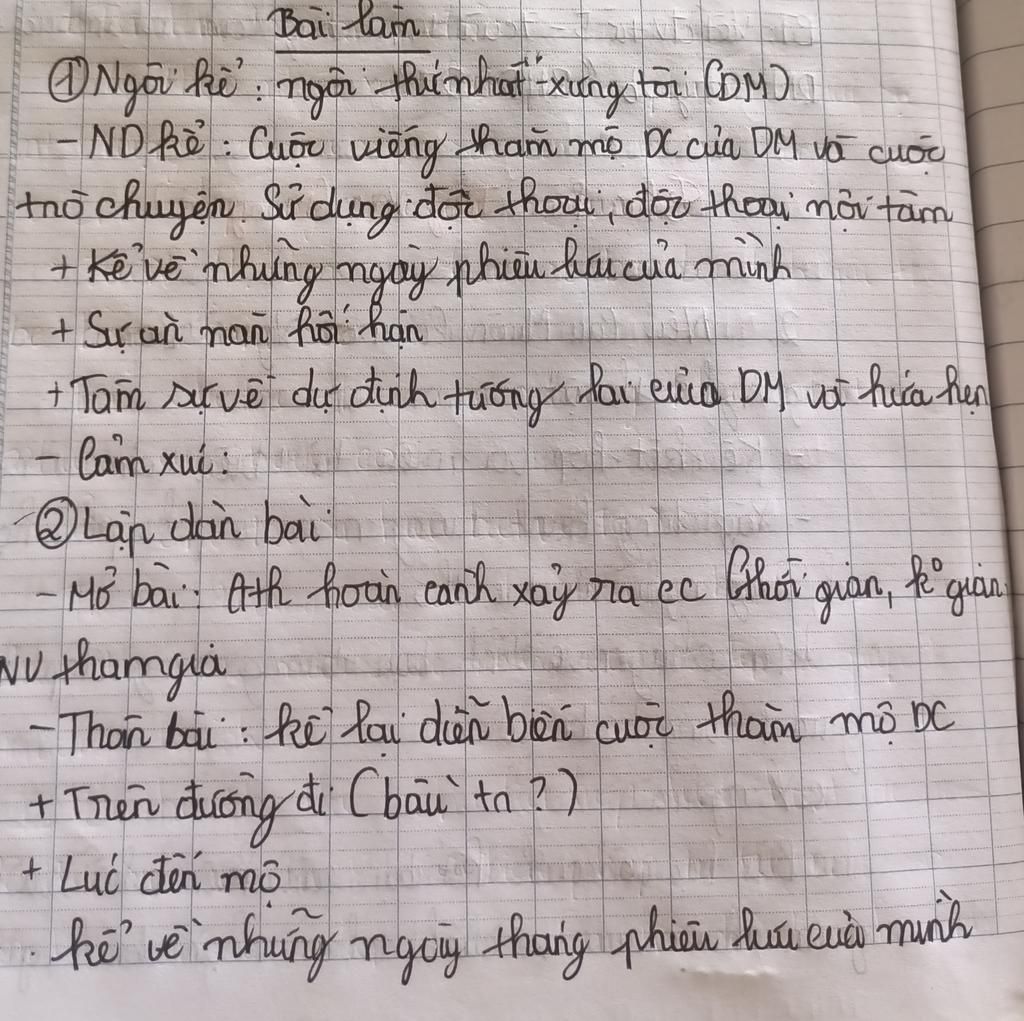 Bài làm
① Ngôi kể: ngôi thứ nhất - xưng tôi (DM)
- ND kể: Cuộc viếng thăm mộ DC của DM và cuộc
trò chuyện. Sử dụng độc thoại, độc thoại nội tâm
+ Kể về những ngày phiêu lưu của mình
+ Sự ăn năn hối hận
+ Tâm sự về dự định tương lai của DM và hứa hẹn
- Cảm xúc:
② Lập dàn bài
- Mở bài: Gth hoàn cảnh xảy ra cc (thời gian, k° gian
NV tham gia
- Thân bài: kể lại diễn biến cuộc thăm mộ DC
+ Trên đường đi (bầu tr?)
+ Lúc đến mộ
. kể về những ngày tháng phiêu lưu của mình